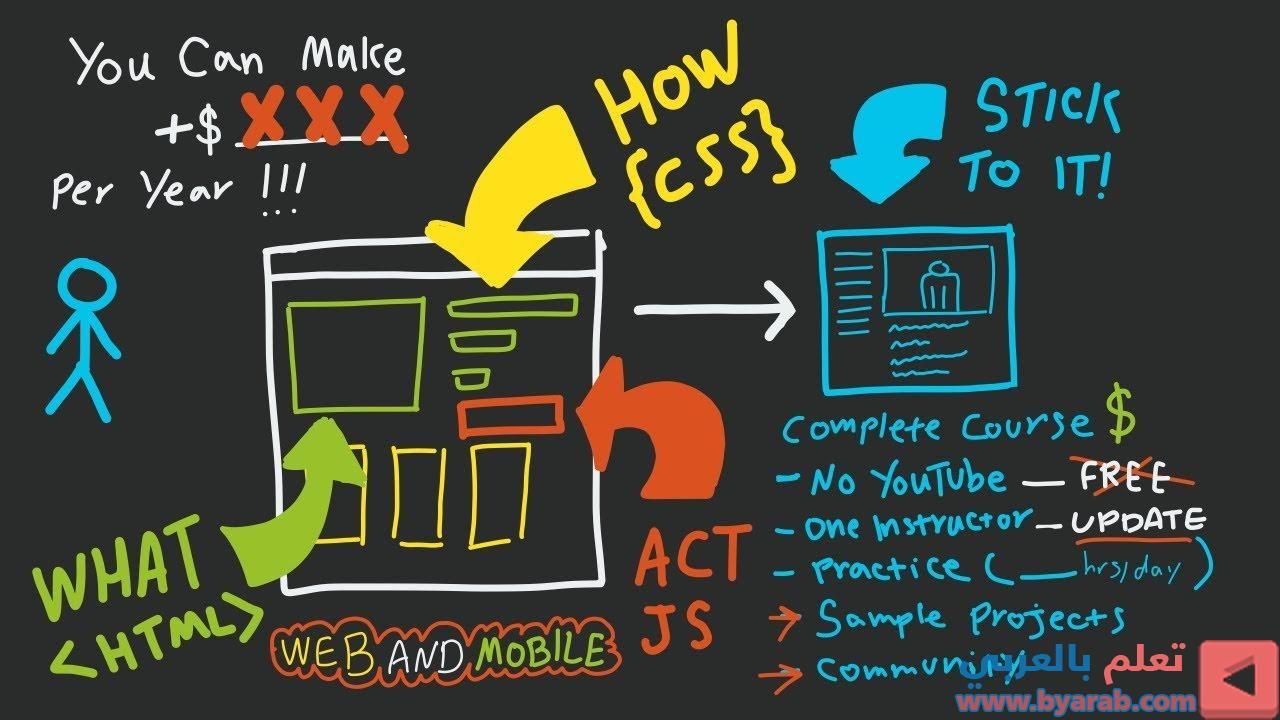 You Can Make
+$ XXX
Per Year !!!
HOW
{CSS}
STICK
TO IT!
WHAT
<HTML>
ACT
JS
WEB AND MOBILE
Complete Course $
- No YouTube — FREE
- One Instructor — UPDATE
- Practice (___ hrs/day)
→ Sample Projects
→ Community
تعلم بالعربي
www.byarab.com